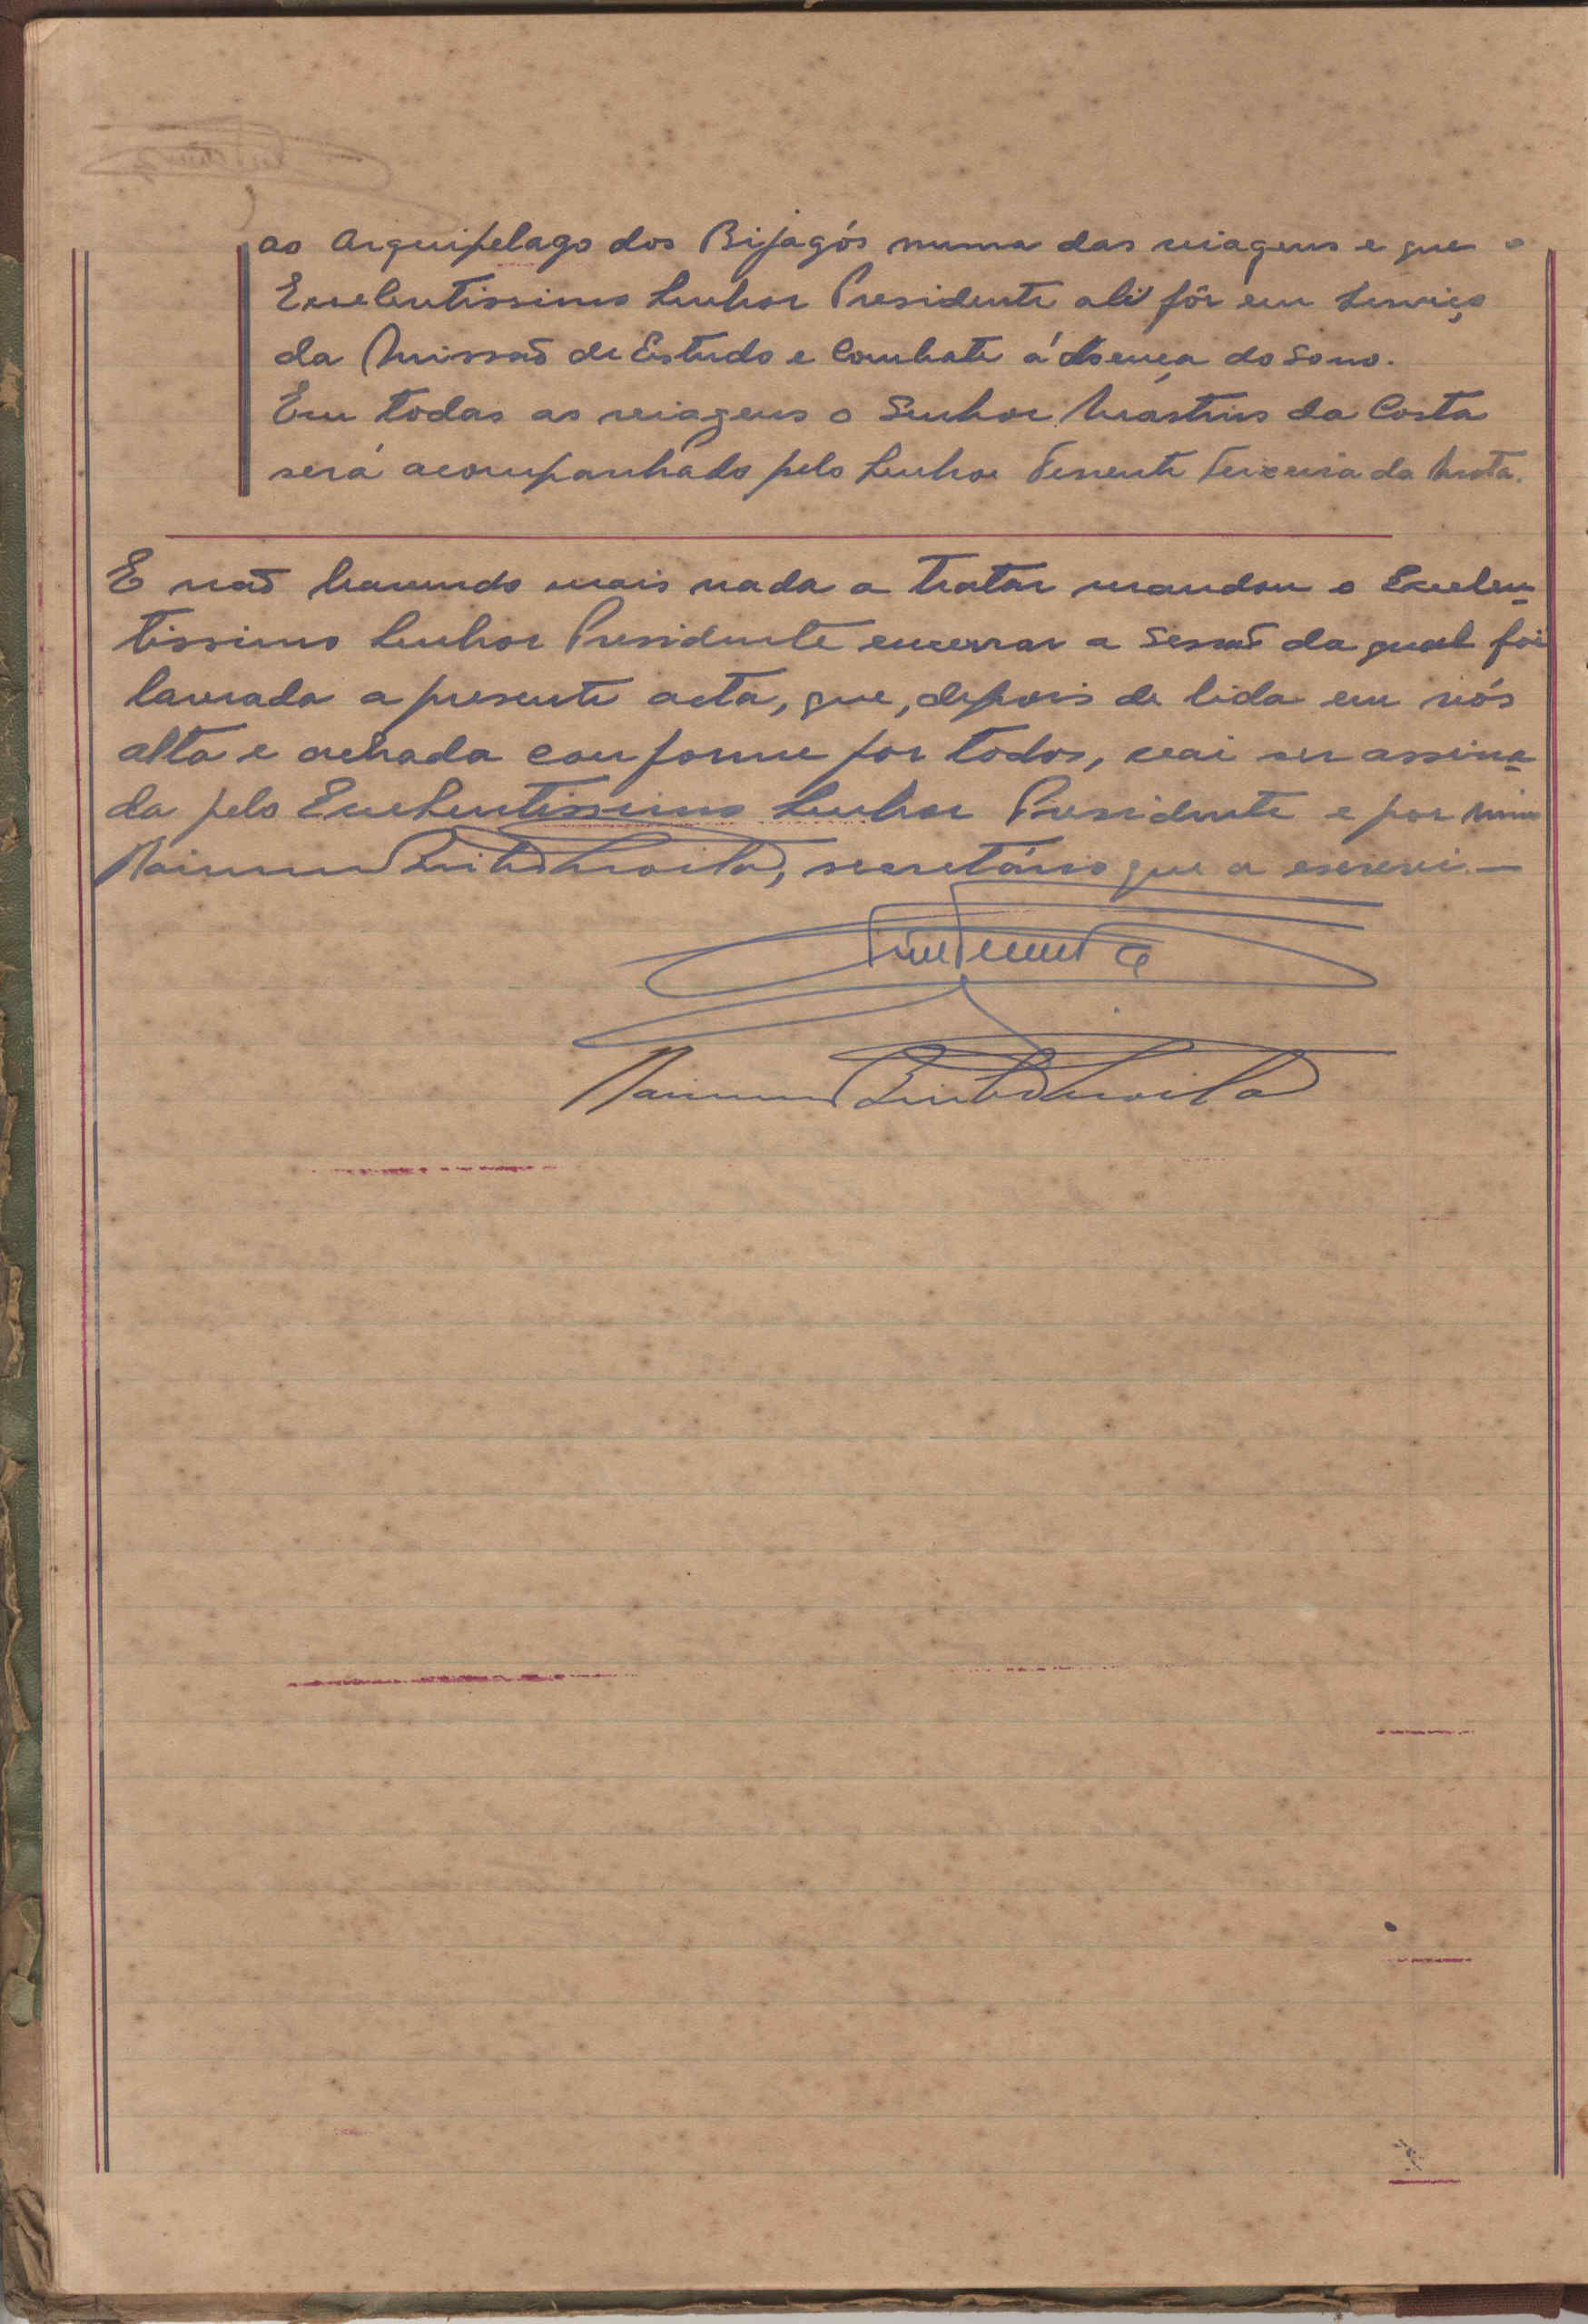 ao Arquipelago dos Bijagós numa das viagens e que o
Excelentissimo Senhor Presidente ali fôr em serviço
da Missão de Estudo e Combate á doença do Sono.
Em todas as viagens o Senhor Martins da Costa
será acompanhado pelo Senhor Tenente Teixeira da Mota.
E não havendo mais nada a tratar mandou o Excelen-
tissimo Senhor Presidente encerrar a sessão da qual foi
lavrada a presente acta, que, depois de lida em vós
alta e achada conforme por todos, vai ser assina-
da pelo Excelentissimo Senhor Presidente e por mim
secretário que a escrevi.—